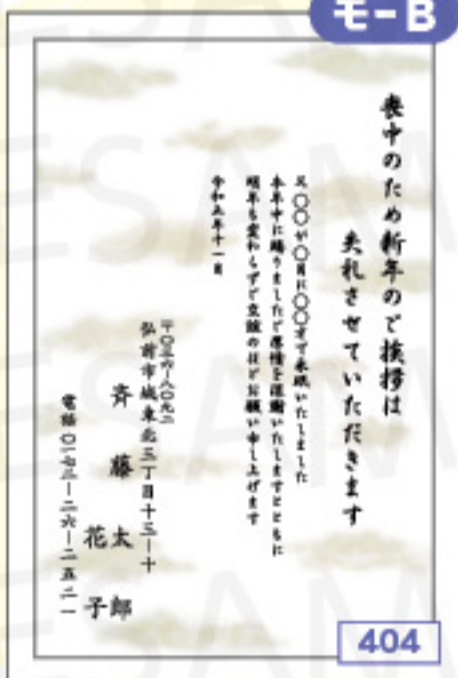 モ-B
喪中のため新年のご挨拶は
失札させていただきます
父〇〇が〇月に〇〇才で永眠いたしました
本年中に賜りましたご厚情を深謝いたしますとともに
明年も変わらずご交誼のほどお願い申し上げます
令和五年十一月
〒〇三六-八〇九二
弘前市城東北三丁目十三-十
斉藤太郎
花子
電話〇一七二-二六-二五二一
404
ESAM